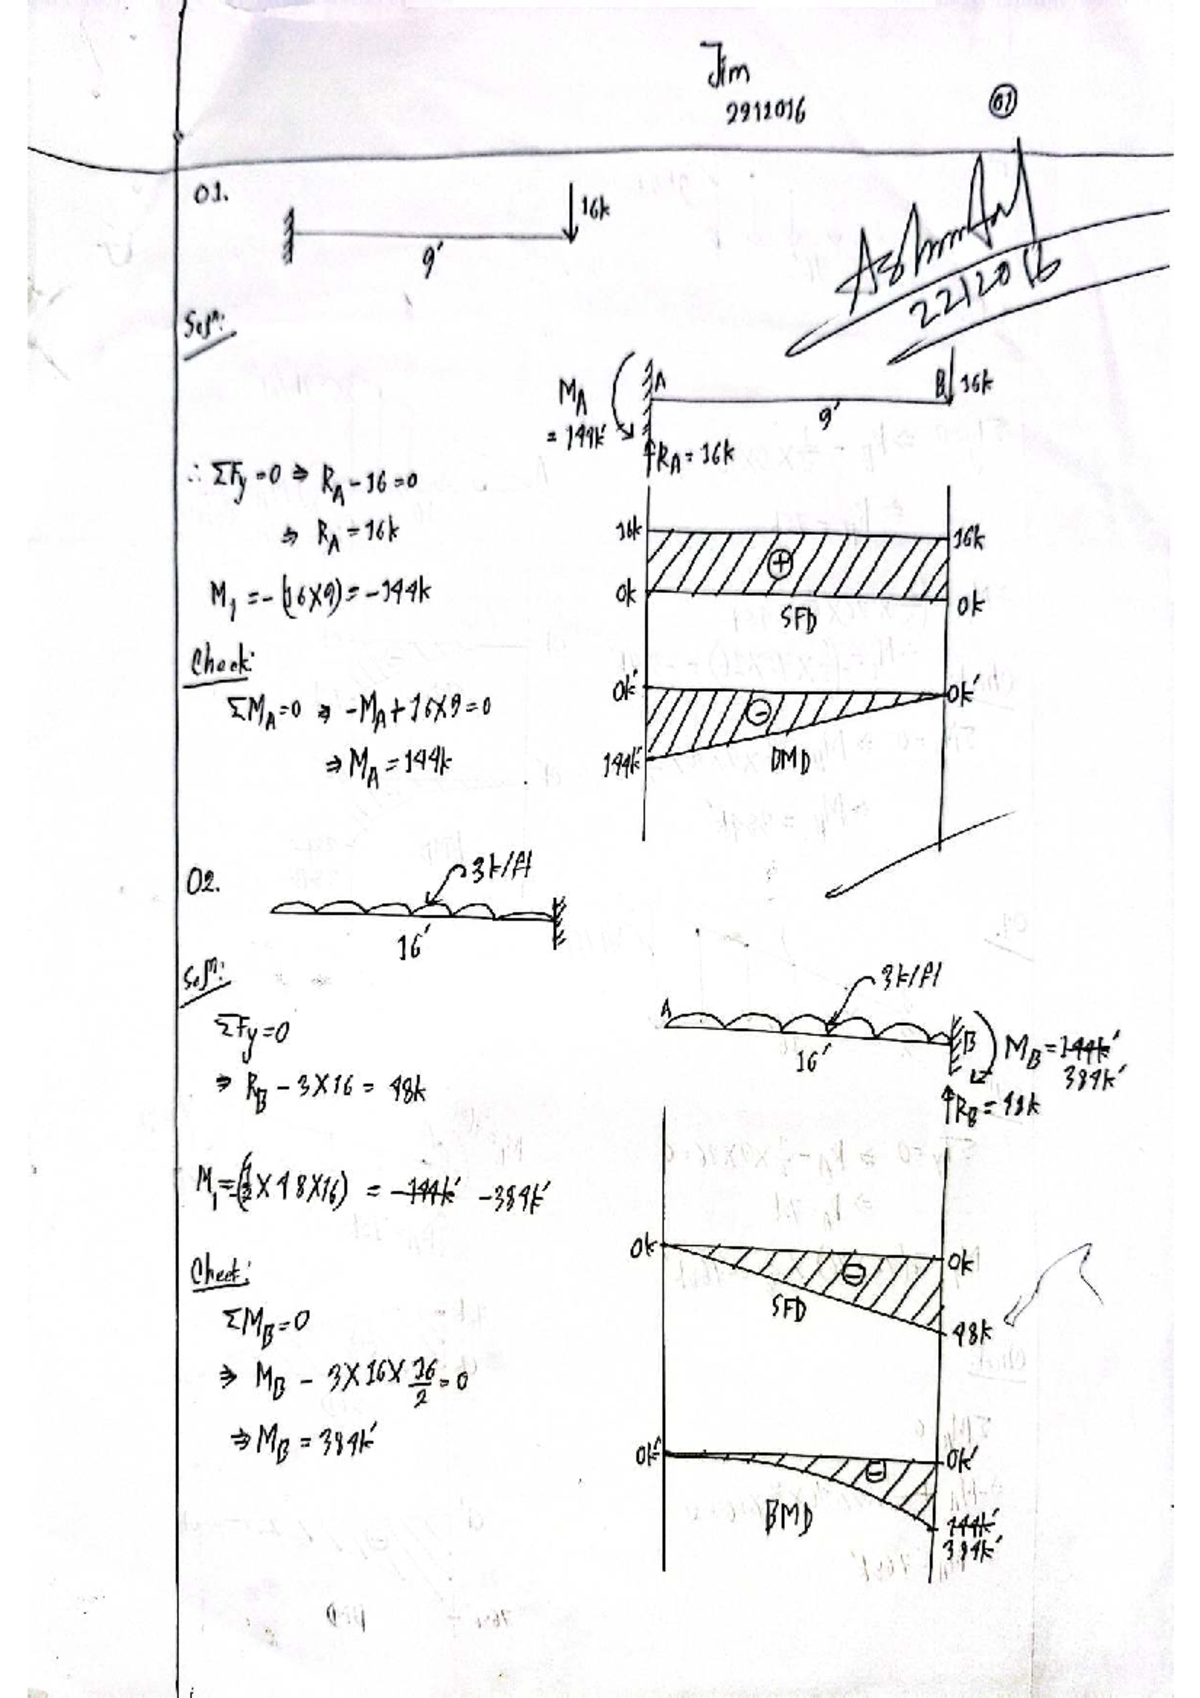 Jim
2212016
01
01.
16k
9'
Solⁿ:
2212016
M_A
= 144k'
A
B
16k
9'
R_A = 16k
∴ ΣFy = 0 ⇒ R_A - 16 = 0
⇒ R_A = 16k
M₁ = -(16×9) = -144k
Check:
ΣM_A = 0 ⇒ -M_A + 16×9 = 0
⇒ M_A = 144k
16k
16k
+
0k
0k
SFD
0k'
0k'
-
144k'
BMD
02.
3k/ft
16'
Solⁿ:
ΣFy = 0
⇒ R_B - 3×16 = 48k
M₁ = -(1/2 × 48×16) = -144k' -384k'
Check:
ΣM_B = 0
⇒ M_B - 3×16×16/2 = 0
⇒ M_B = 384k'
3k/ft
A
B
16'
M_B = 144k'
384k'
R_B = 48k
0k
0k
-
SFD
48k
0k'
0k'
-
BMD
144k'
384k'